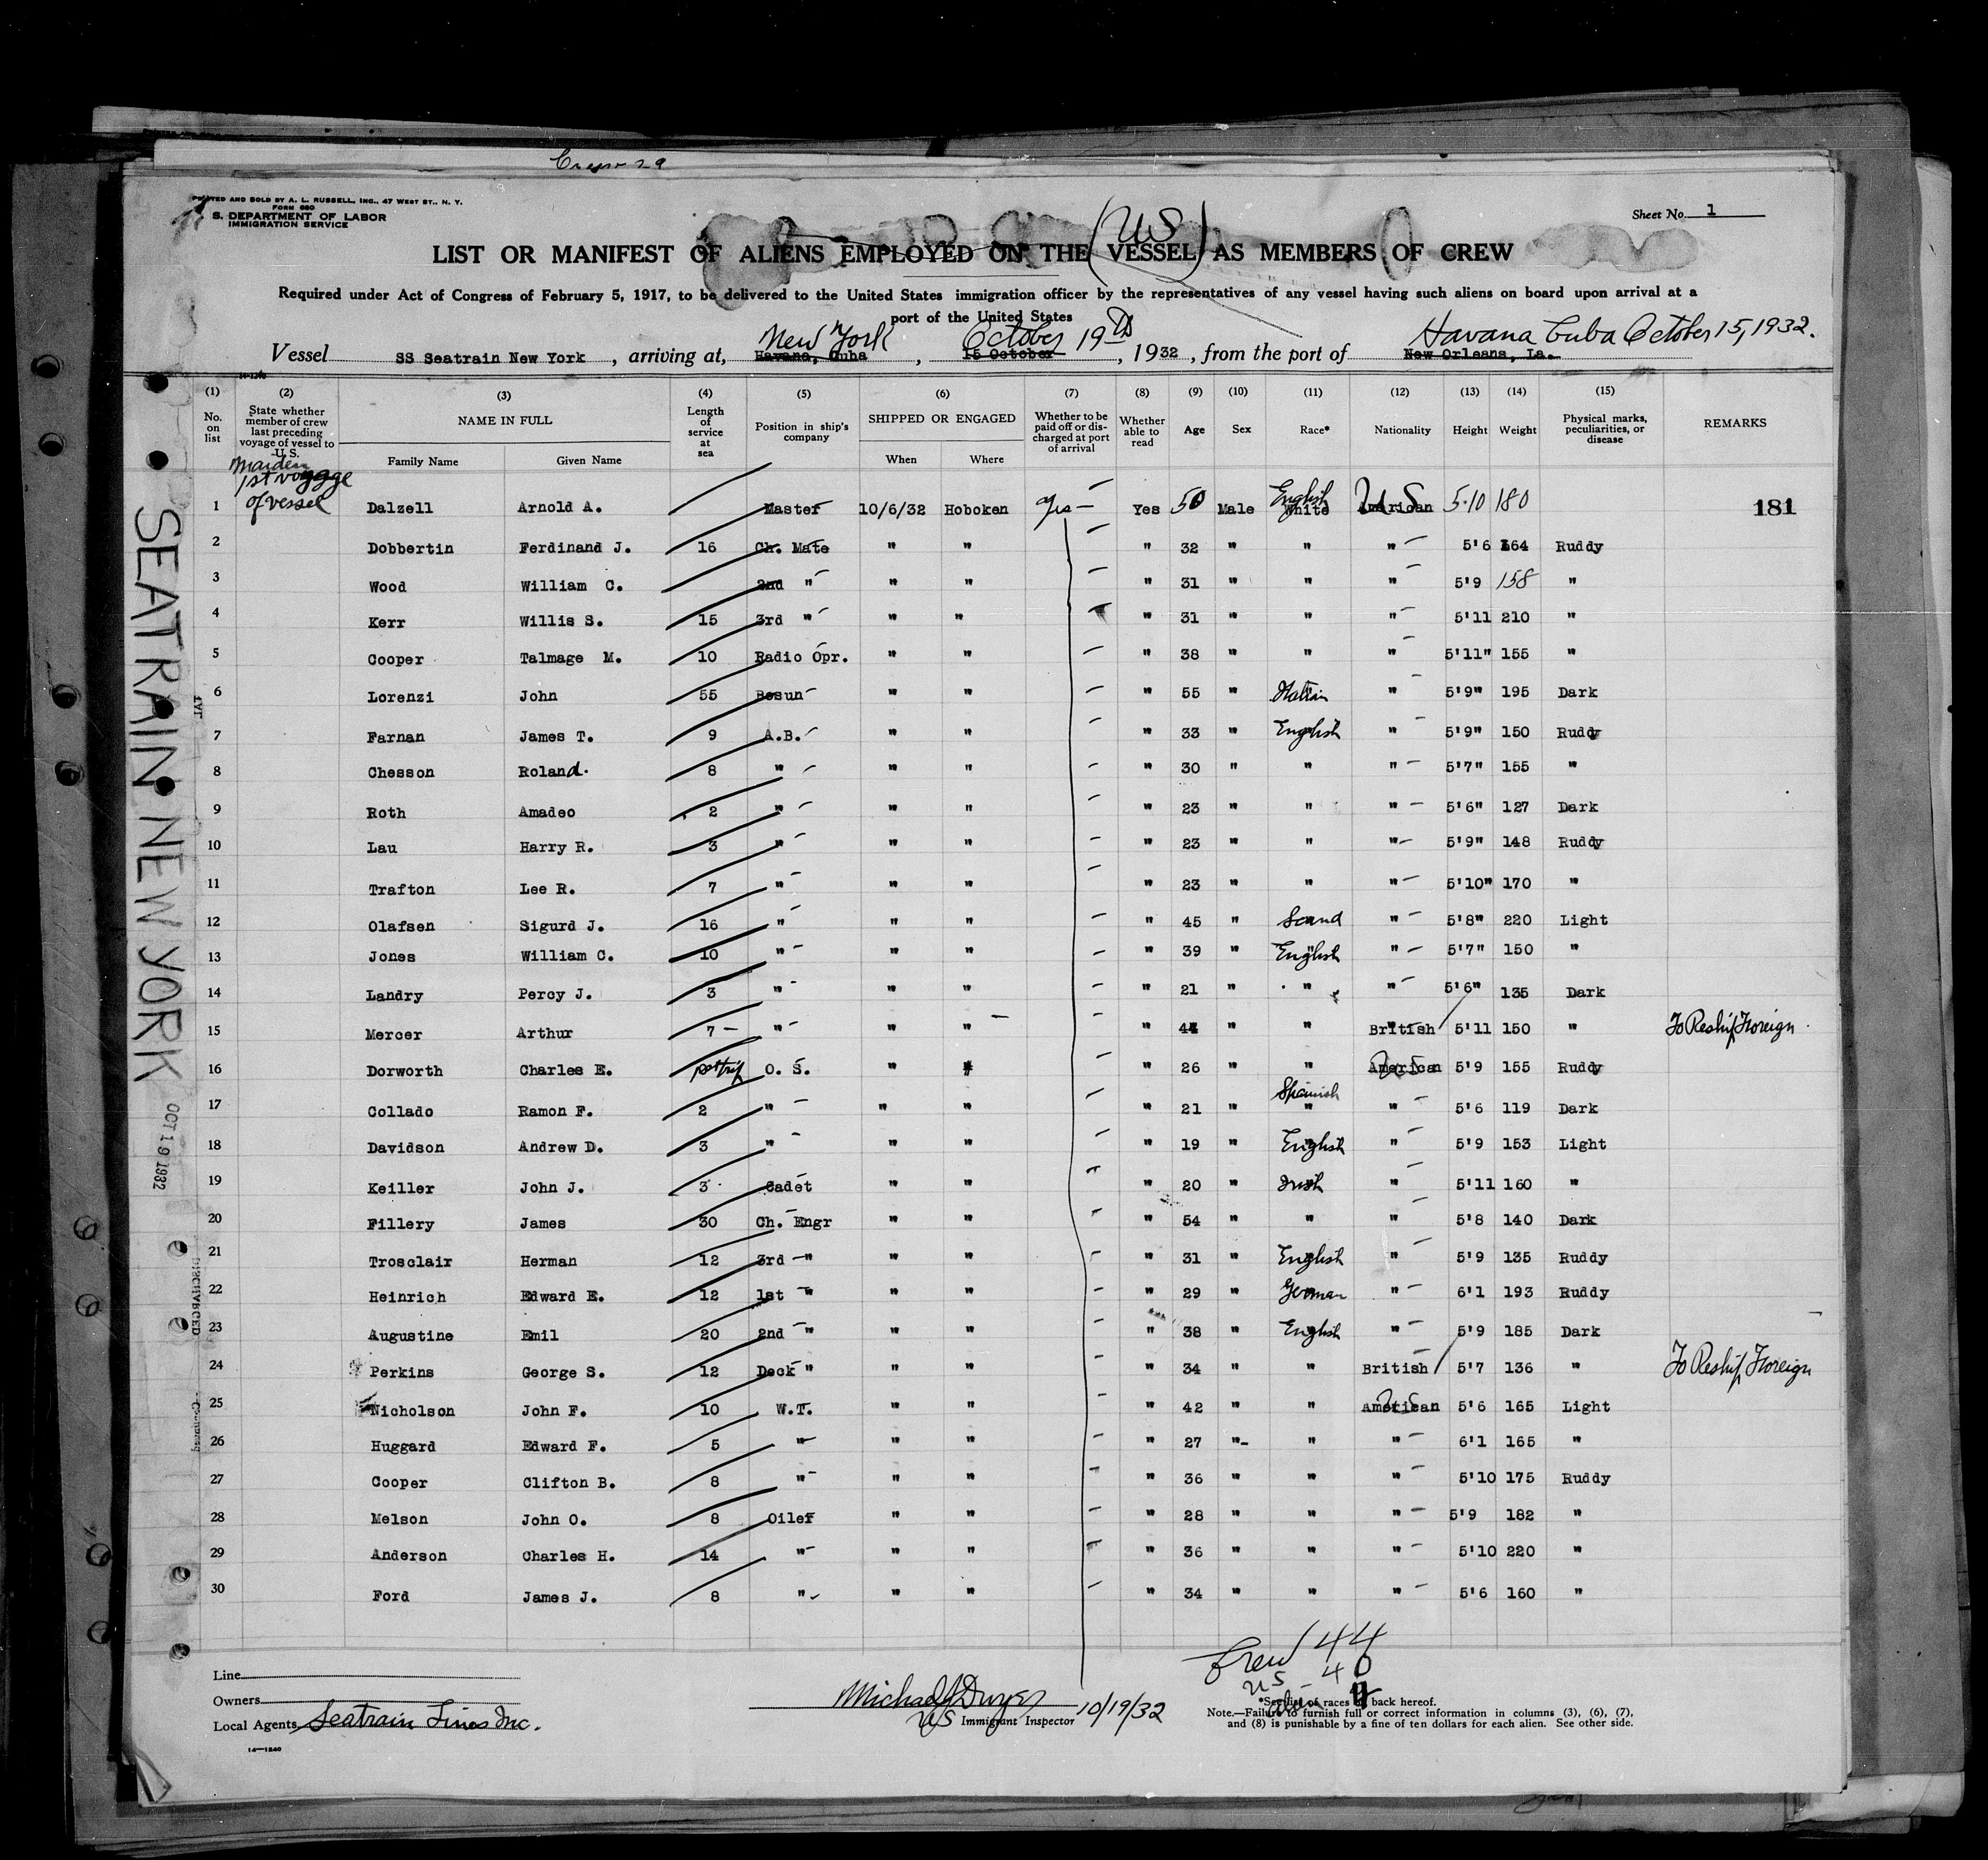 Crew 29
PRINTED AND SOLD BY A. L. RUSSELL, INC., 47 WEST ST., N. Y.
FORM 680
S. DEPARTMENT OF LABOR
IMMIGRATION SERVICE
Sheet No. 1
(US)
LIST OR MANIFEST OF ALIENS EMPLOYED ON THE VESSEL AS MEMBERS OF CREW
Required under Act of Congress of February 5, 1917, to be delivered to the United States immigration officer by the representatives of any vessel having such aliens on board upon arrival at a
port of the United States
New York October 19th Havana Cuba October 15, 1932.
Vessel SS Seatrain New York, arriving at, Havana, Cuba, 15 October, 1932, from the port of New Orleans, La.
(1) (2) (3) (4) (5) (6) (7) (8) (9) (10) (11) (12) (13) (14) (15)
No. on list
State whether member of crew last preceding voyage of vessel to U.S.
NAME IN FULL
Family Name Given Name
Length of service at sea
Position in ship's company
SHIPPED OR ENGAGED
When Where
Whether to be paid off or discharged at port of arrival
Whether able to read
Age
Sex
Race*
Nationality
Height
Weight
Physical marks, peculiarities, or disease
REMARKS
Maiden
1st voyage
of vessel
1 Dalzell Arnold A. Master 10/6/32 Hoboken Yes Yes 50 Male English White US American 5-10 180 181
2 Dobbertin Ferdinand J. 16 Ch. Mate " " " 32 " " " 5'6 164 Ruddy
3 Wood William C. 2nd " " " " 31 " " " 5'9 158 "
4 Kerr Willis S. 15 3rd " " " " 31 " " " 5'11 210 "
5 Cooper Talmage M. 10 Radio Opr. " " " 38 " " " 5'11" 155 "
6 Lorenzi John 55 Bosun " " " 55 " Italian " 5'9" 195 Dark
7 Farnan James T. 9 A.B. " " " 33 " English " 5'9" 150 Ruddy
8 Chesson Roland. 8 " " " " 30 " " " 5'7" 155 "
9 Roth Amadeo 2 " " " " 23 " " " 5'6" 127 Dark
10 Lau Harry R. 3 " " " " 23 " " " 5'9" 148 Ruddy
11 Trafton Lee R. 7 " " " " 23 " " " 5'10" 170 "
12 Olafsen Sigurd J. 16 " " " " 45 " Scand " 5'8" 220 Light
13 Jones William C. 10 " " " " 39 " English " 5'7" 150 "
14 Landry Percy J. 3 " " " " 21 " " " 5'6" 135 Dark
15 Mercer Arthur 7 " " " " 44 " " British 5'11 150 " To Reship Foreign
16 Dorworth Charles E. O. S. " " " 26 " " American 5'9 155 Ruddy
17 Collado Ramon F. 2 " " " " 21 " Spanish " " 5'6 119 Dark
18 Davidson Andrew D. 3 " " " " 19 " English " 5'9 153 Light
19 Keiller John J. 3 Cadet " " " 20 " Irish " 5'11 160 "
20 Fillery James 30 Ch. Engr " " " 54 " " " 5'8 140 Dark
21 Trosclair Herman 12 3rd " " " " 31 " English " 5'9 135 Ruddy
22 Heinrich Edward E. 12 1st " " " " 29 " German " 6'1 193 Ruddy
23 Augustine Emil 20 2nd " " " " 38 " English " 5'9 185 Dark
24 Perkins George S. 12 Deck " " " " 34 " " British 5'7 136 " To Reship Foreign
25 Nicholson John F. 10 W.T. " " " 42 " " American 5'6 165 Light
26 Huggard Edward F. 5 " " " " 27 " " " 6'1 165 "
27 Cooper Clifton B. 8 " " " " 36 " " " 5'10 175 Ruddy
28 Melson John O. 8 Oiler " " " 28 " " " 5'9 182 "
29 Anderson Charles H. 14 " " " " 36 " " " 5'10 220 "
30 Ford James J. 8 " " " " 34 " " " 5'6 160 "
SEATRAIN NEW YORK
OCT 19 1932
DISCHARGED
Crew 44
US 40
Line
Owners
Local Agents Seatrain Lines Inc.
14—1240
Michael J Dwyer 10/19/32
US Immigrant Inspector
*See list of races on back hereof.
Note.—Failure to furnish full or correct information in columns (3), (6), (7),
and (8) is punishable by a fine of ten dollars for each alien. See other side.